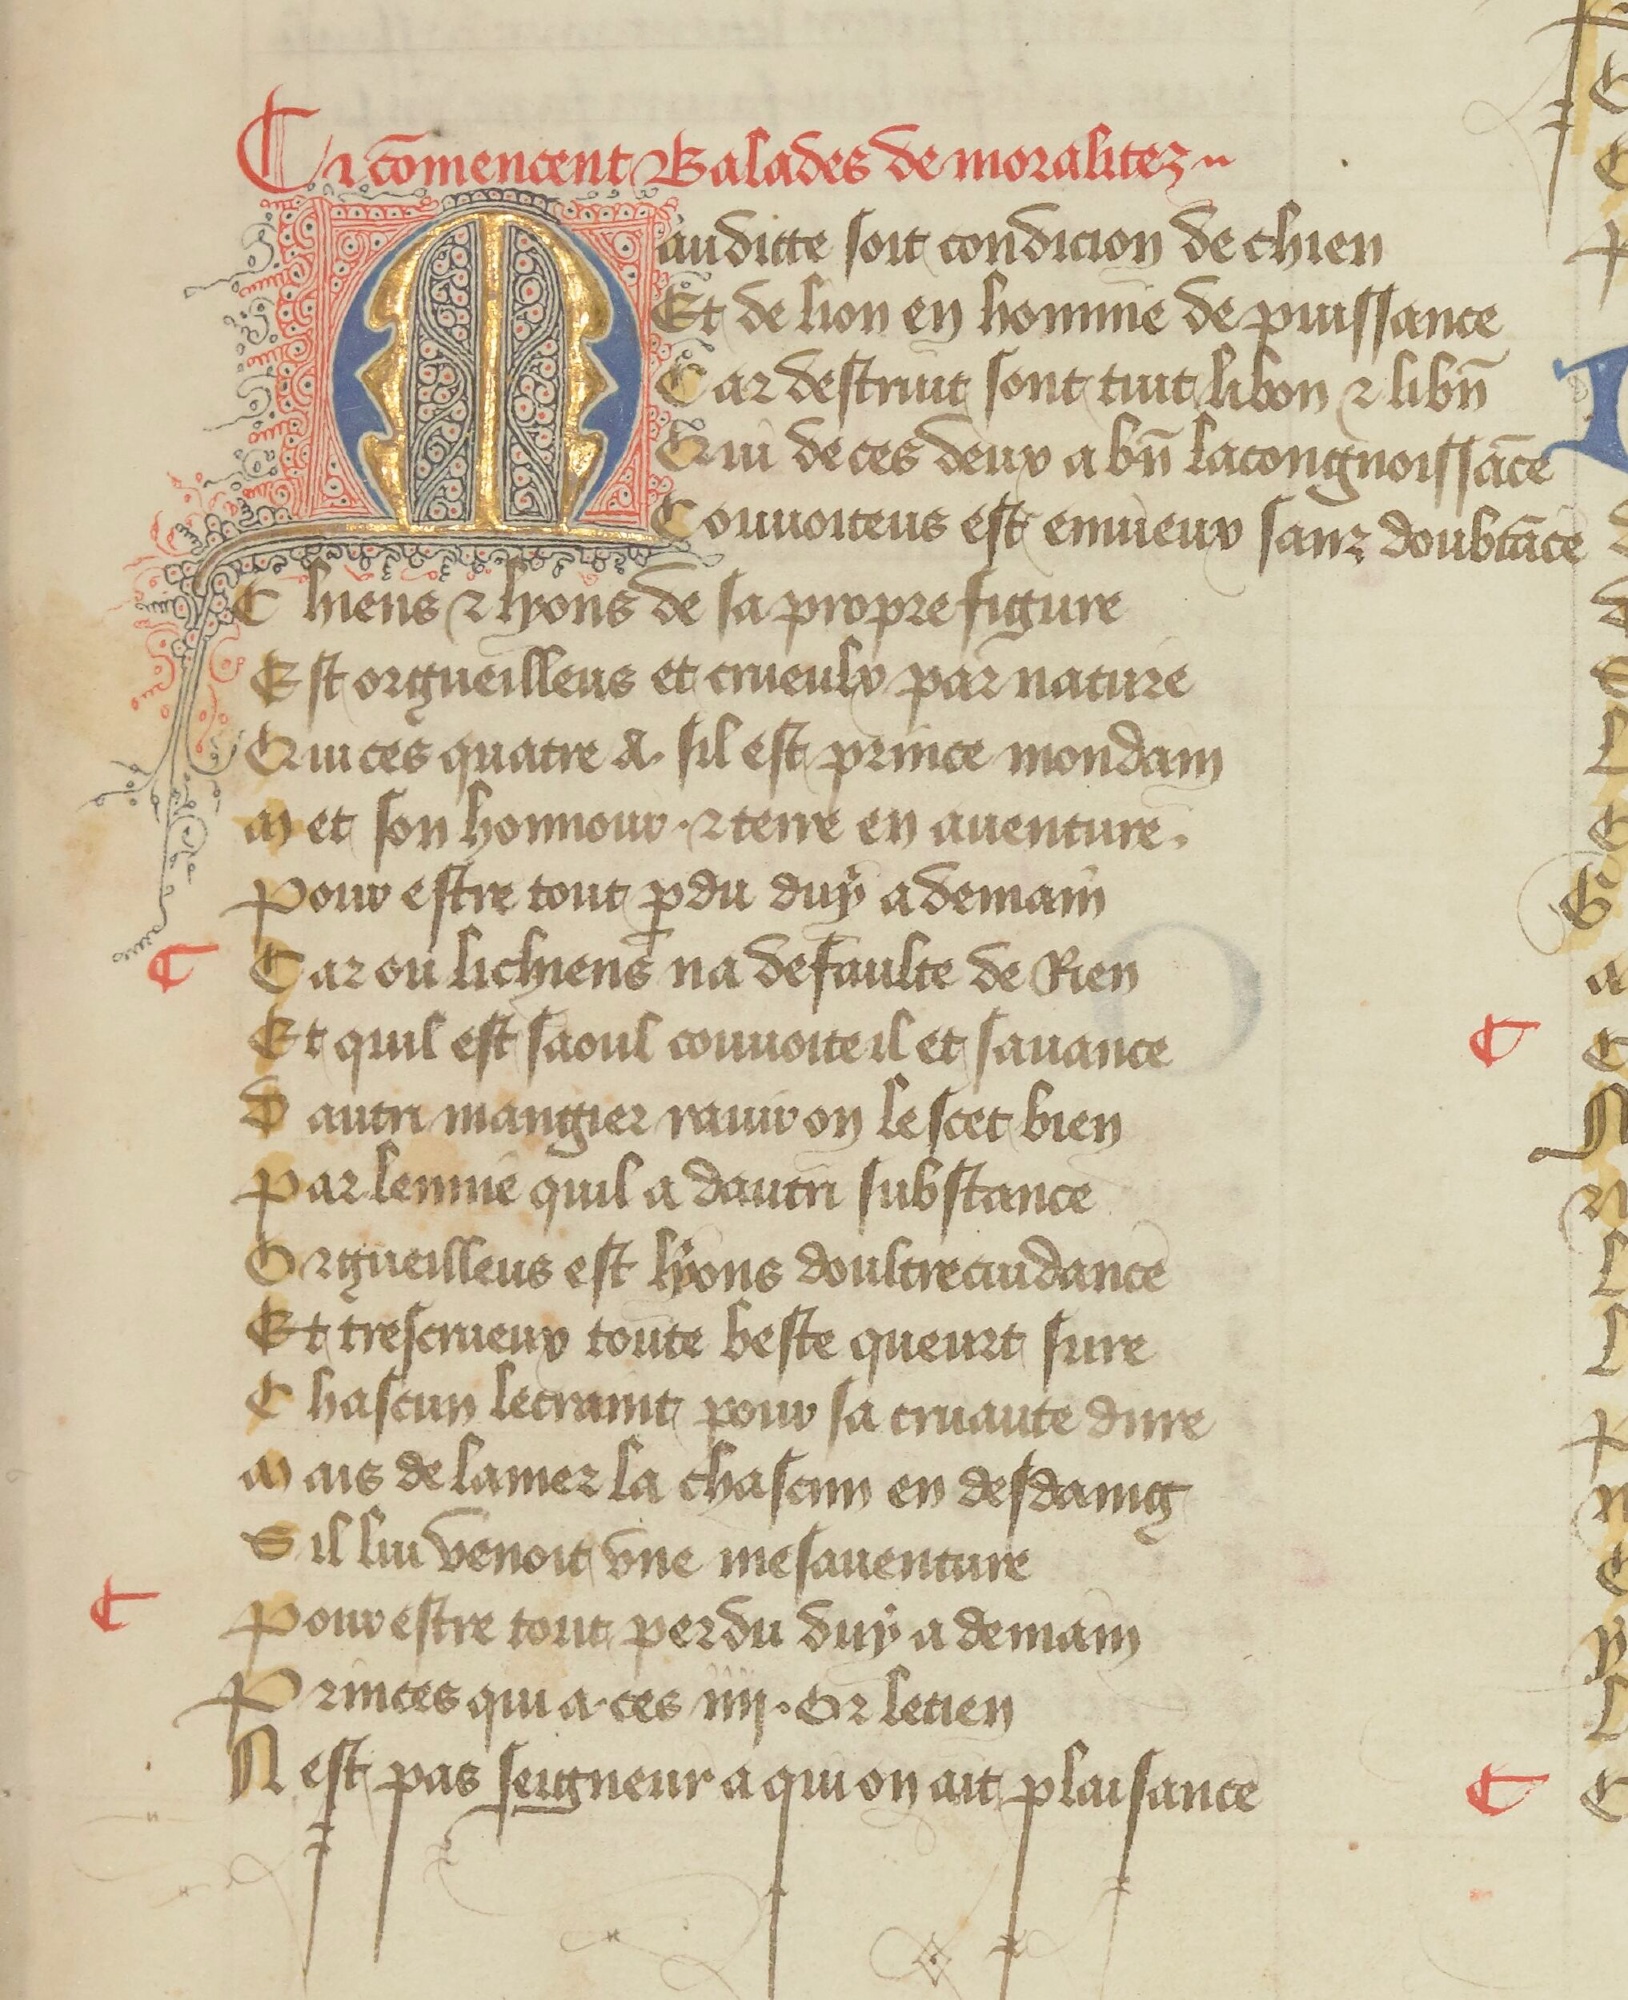 Ci cōmencent Balades de moralitez
Mauditte soit condicion de chien
Et de lion en homme de puissance
Car destruit sont tuit li bon ⁊ li bn̄
Qui de ces deux a bn̄ la congnoissāce
Couuoiteus est enuieux sanz doubtāce
Chiens ⁊ lyons de sa propre figure
Est orgueilleus et crueulx par nature
Qui ces quatre a. sil est prince mondain
Met son honnour . ⁊ terre en auenture.
Pour estre tout ꝑdu duy a demain
Car ou li chiens na defaulte de Rien
Et quil est saoul couuoite il et sauance
Dautri mangier rauir on le scet bien
Par lenuie quil a dautri substance
Orgueilleus est lyons doultrecuidance
Et trescrueux toute beste queurt sure
Chascun le craint pour sa cruaute dure
Mais de lamer la chascun en desdaing
Sil lui venoit vne mesauenture
Pour estre tout perdu duy a demain
Princes qui a . ces iiij. Or le tien
Nest pas seigneur a qui on ait plaisance